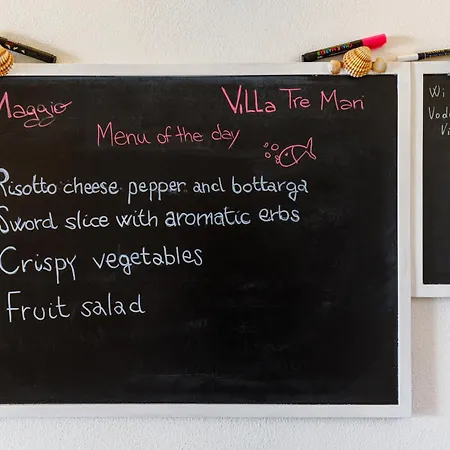 Maggio
Villa Tre Mari
Menu of the day
Risotto cheese pepper and bottarga
Sword slice with aromatic erbs
Crispy vegetables
Fruit salad
Wi
Vi